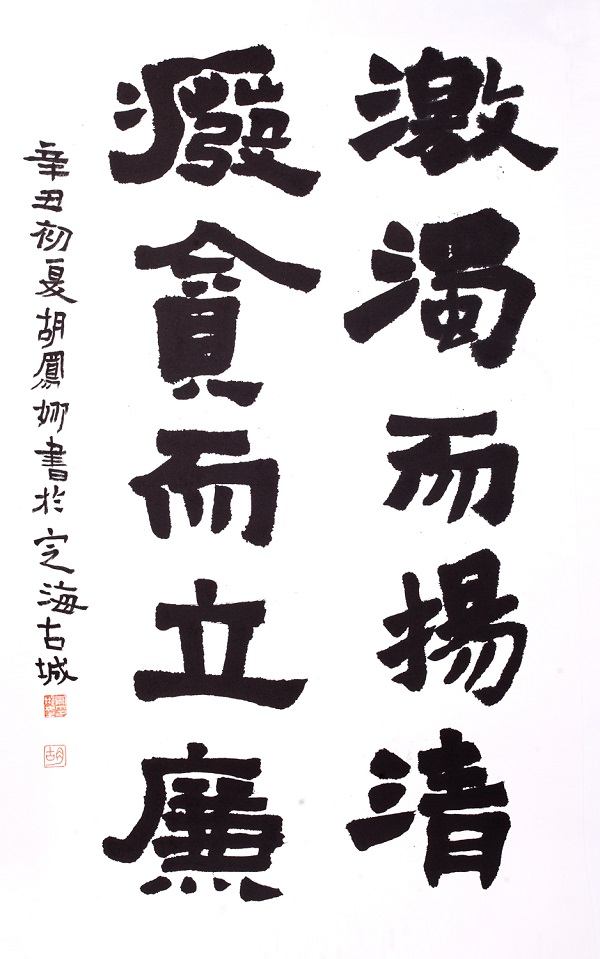 激濁而揚清
癈貪而立廉
辛丑初夏胡鳳娜書於定海古城
胡